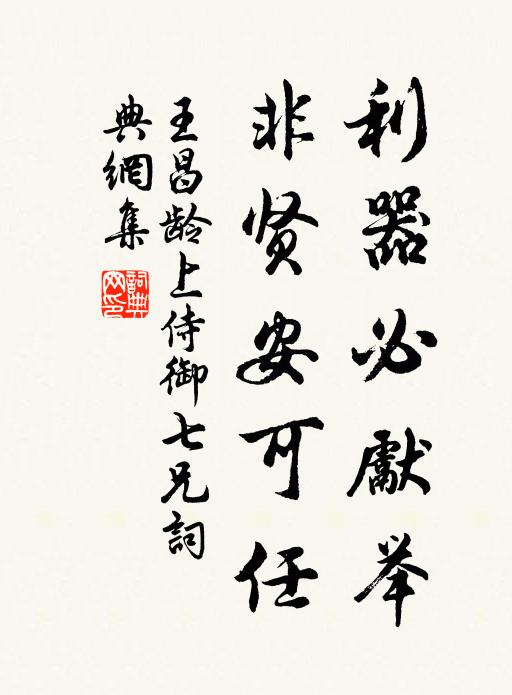 利器必獻举
非贤安可任
王昌龄上侍御七兄詞
典網集
詞典网印